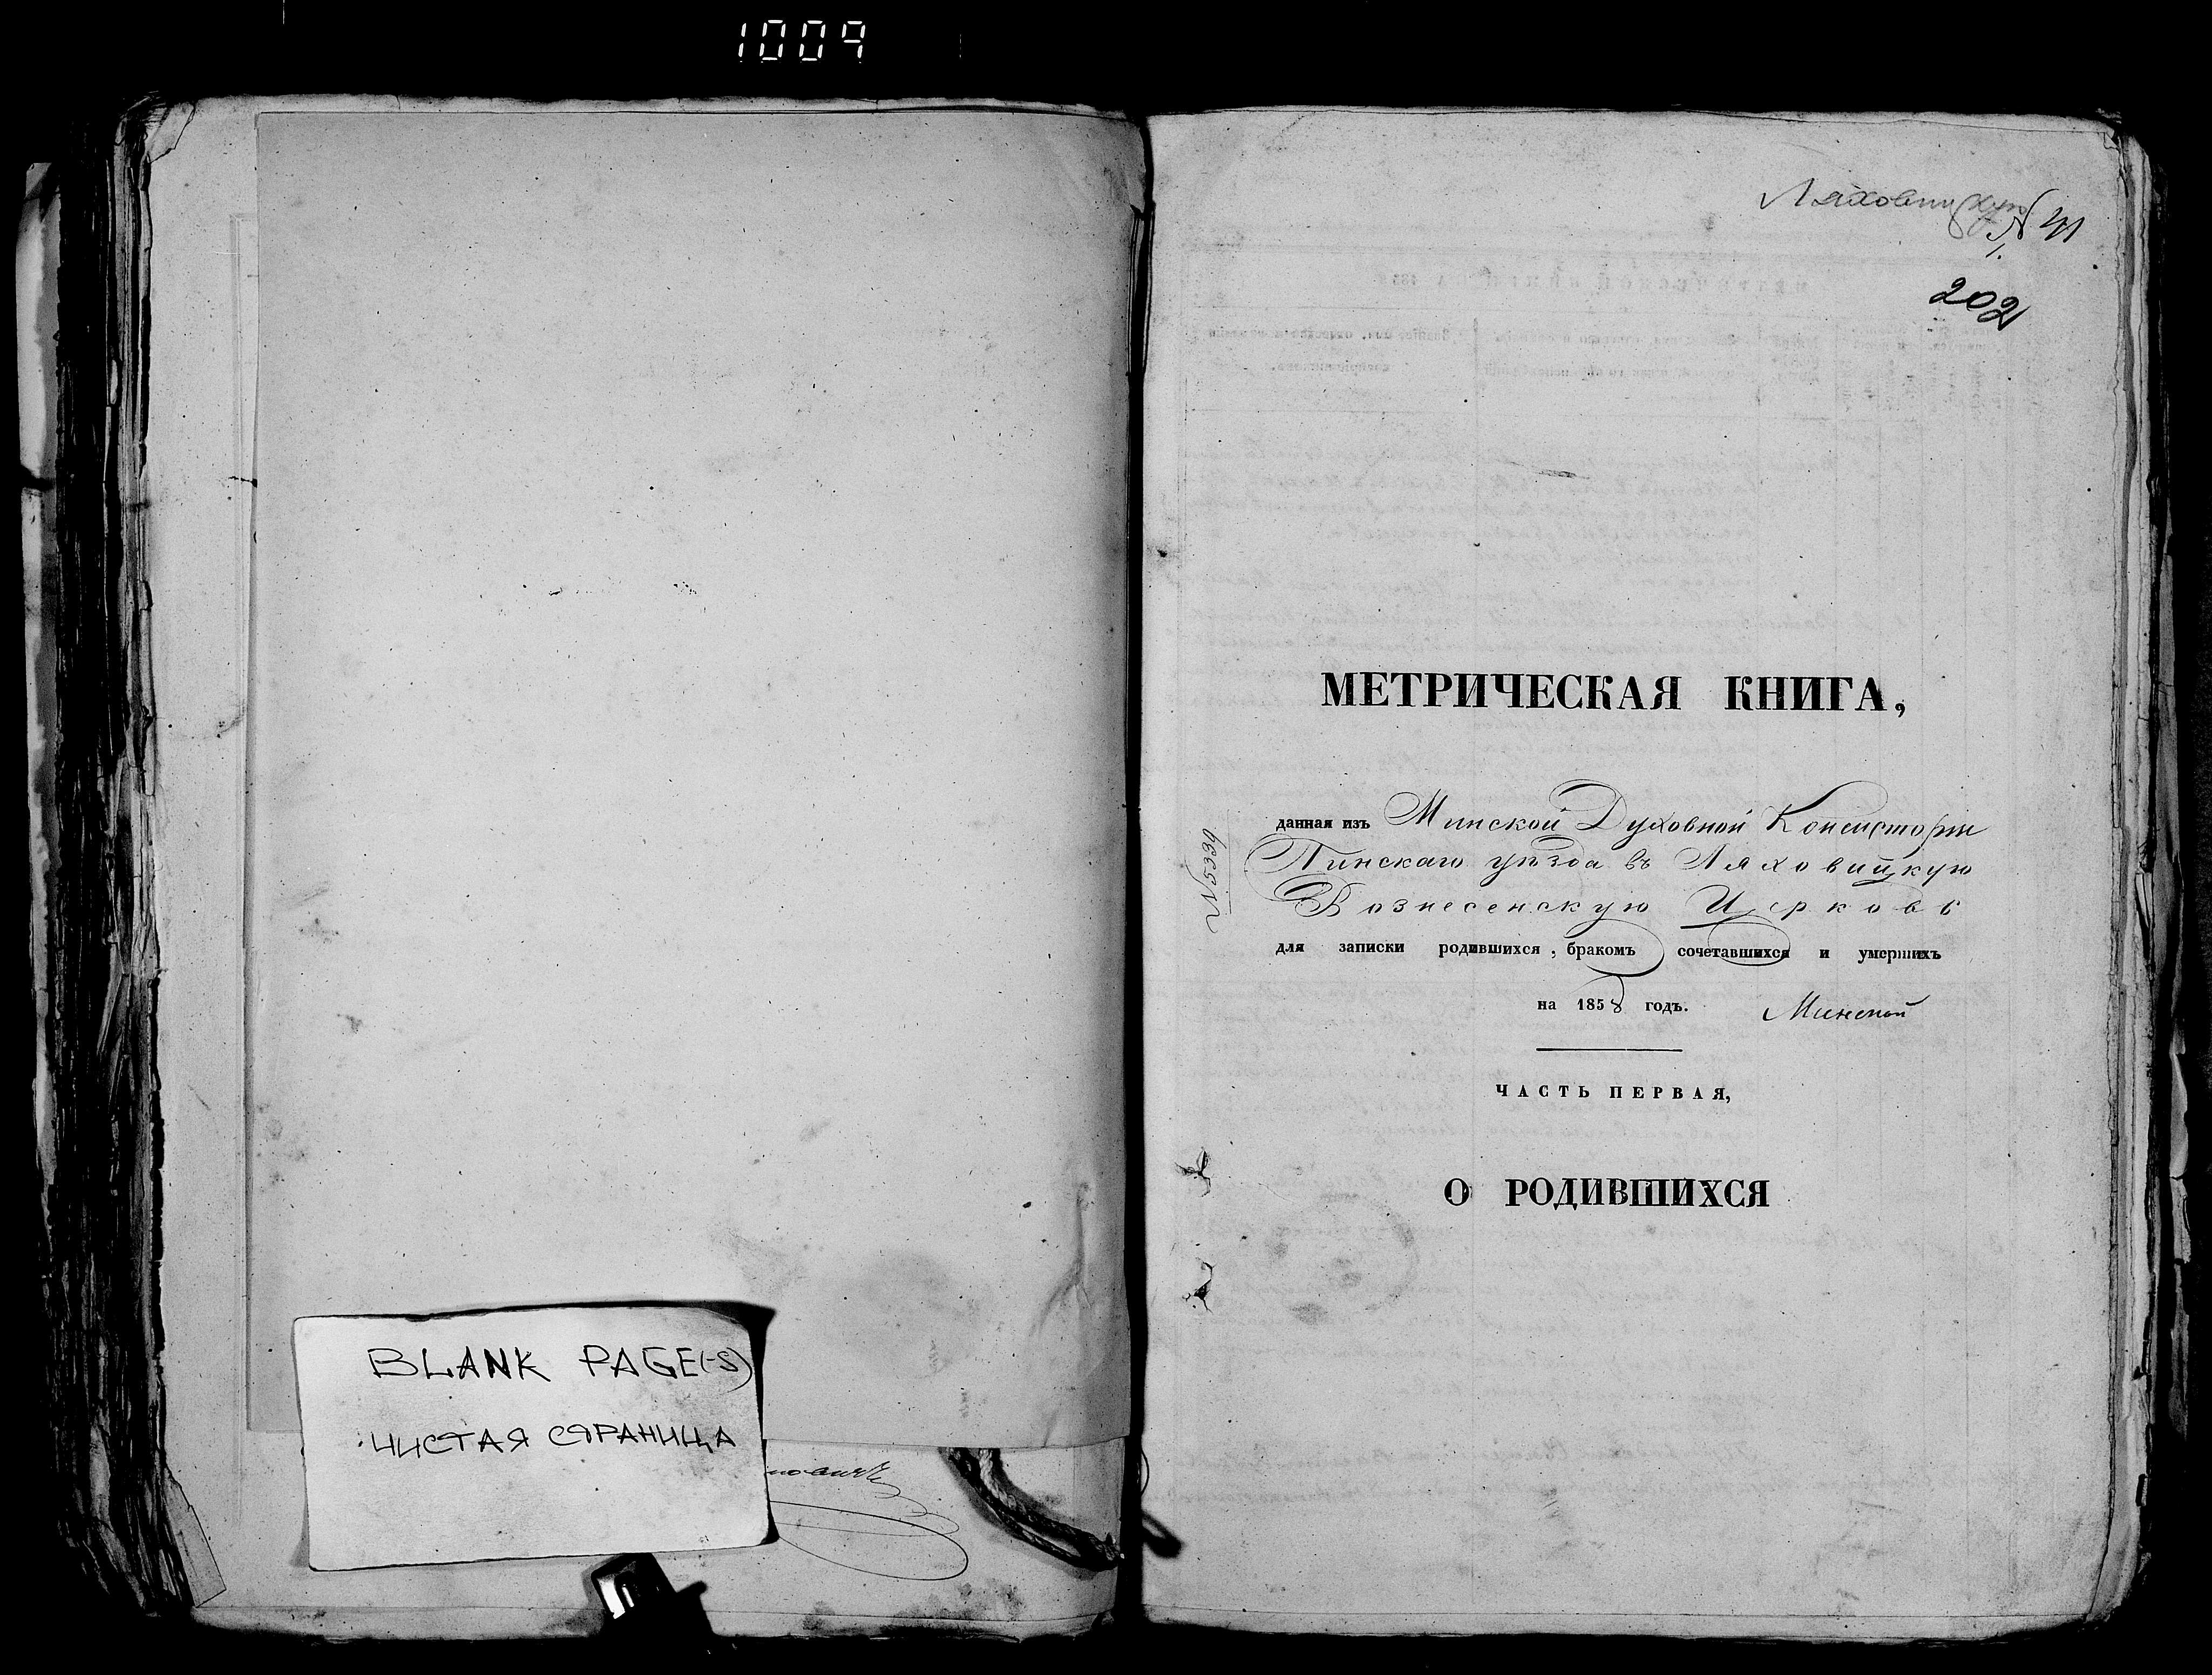 1009
BLANK PAGE(-S)
ЧИСТАЯ СТРАНИЦА
Ляховицкую
№ 41
202
МЕТРИЧЕСКАЯ КНИГА,
данная изъ Минской Духовной Консисторіи
Пинскаго уѣзда въ Ляховицкую
Вознесенскую Церковь
№ 5339
для записки родившихся, бракомъ сочетавшихся и умершихъ
на 1858 годъ. Минской
ЧАСТЬ ПЕРВАЯ,
О РОДИВШИХСЯ